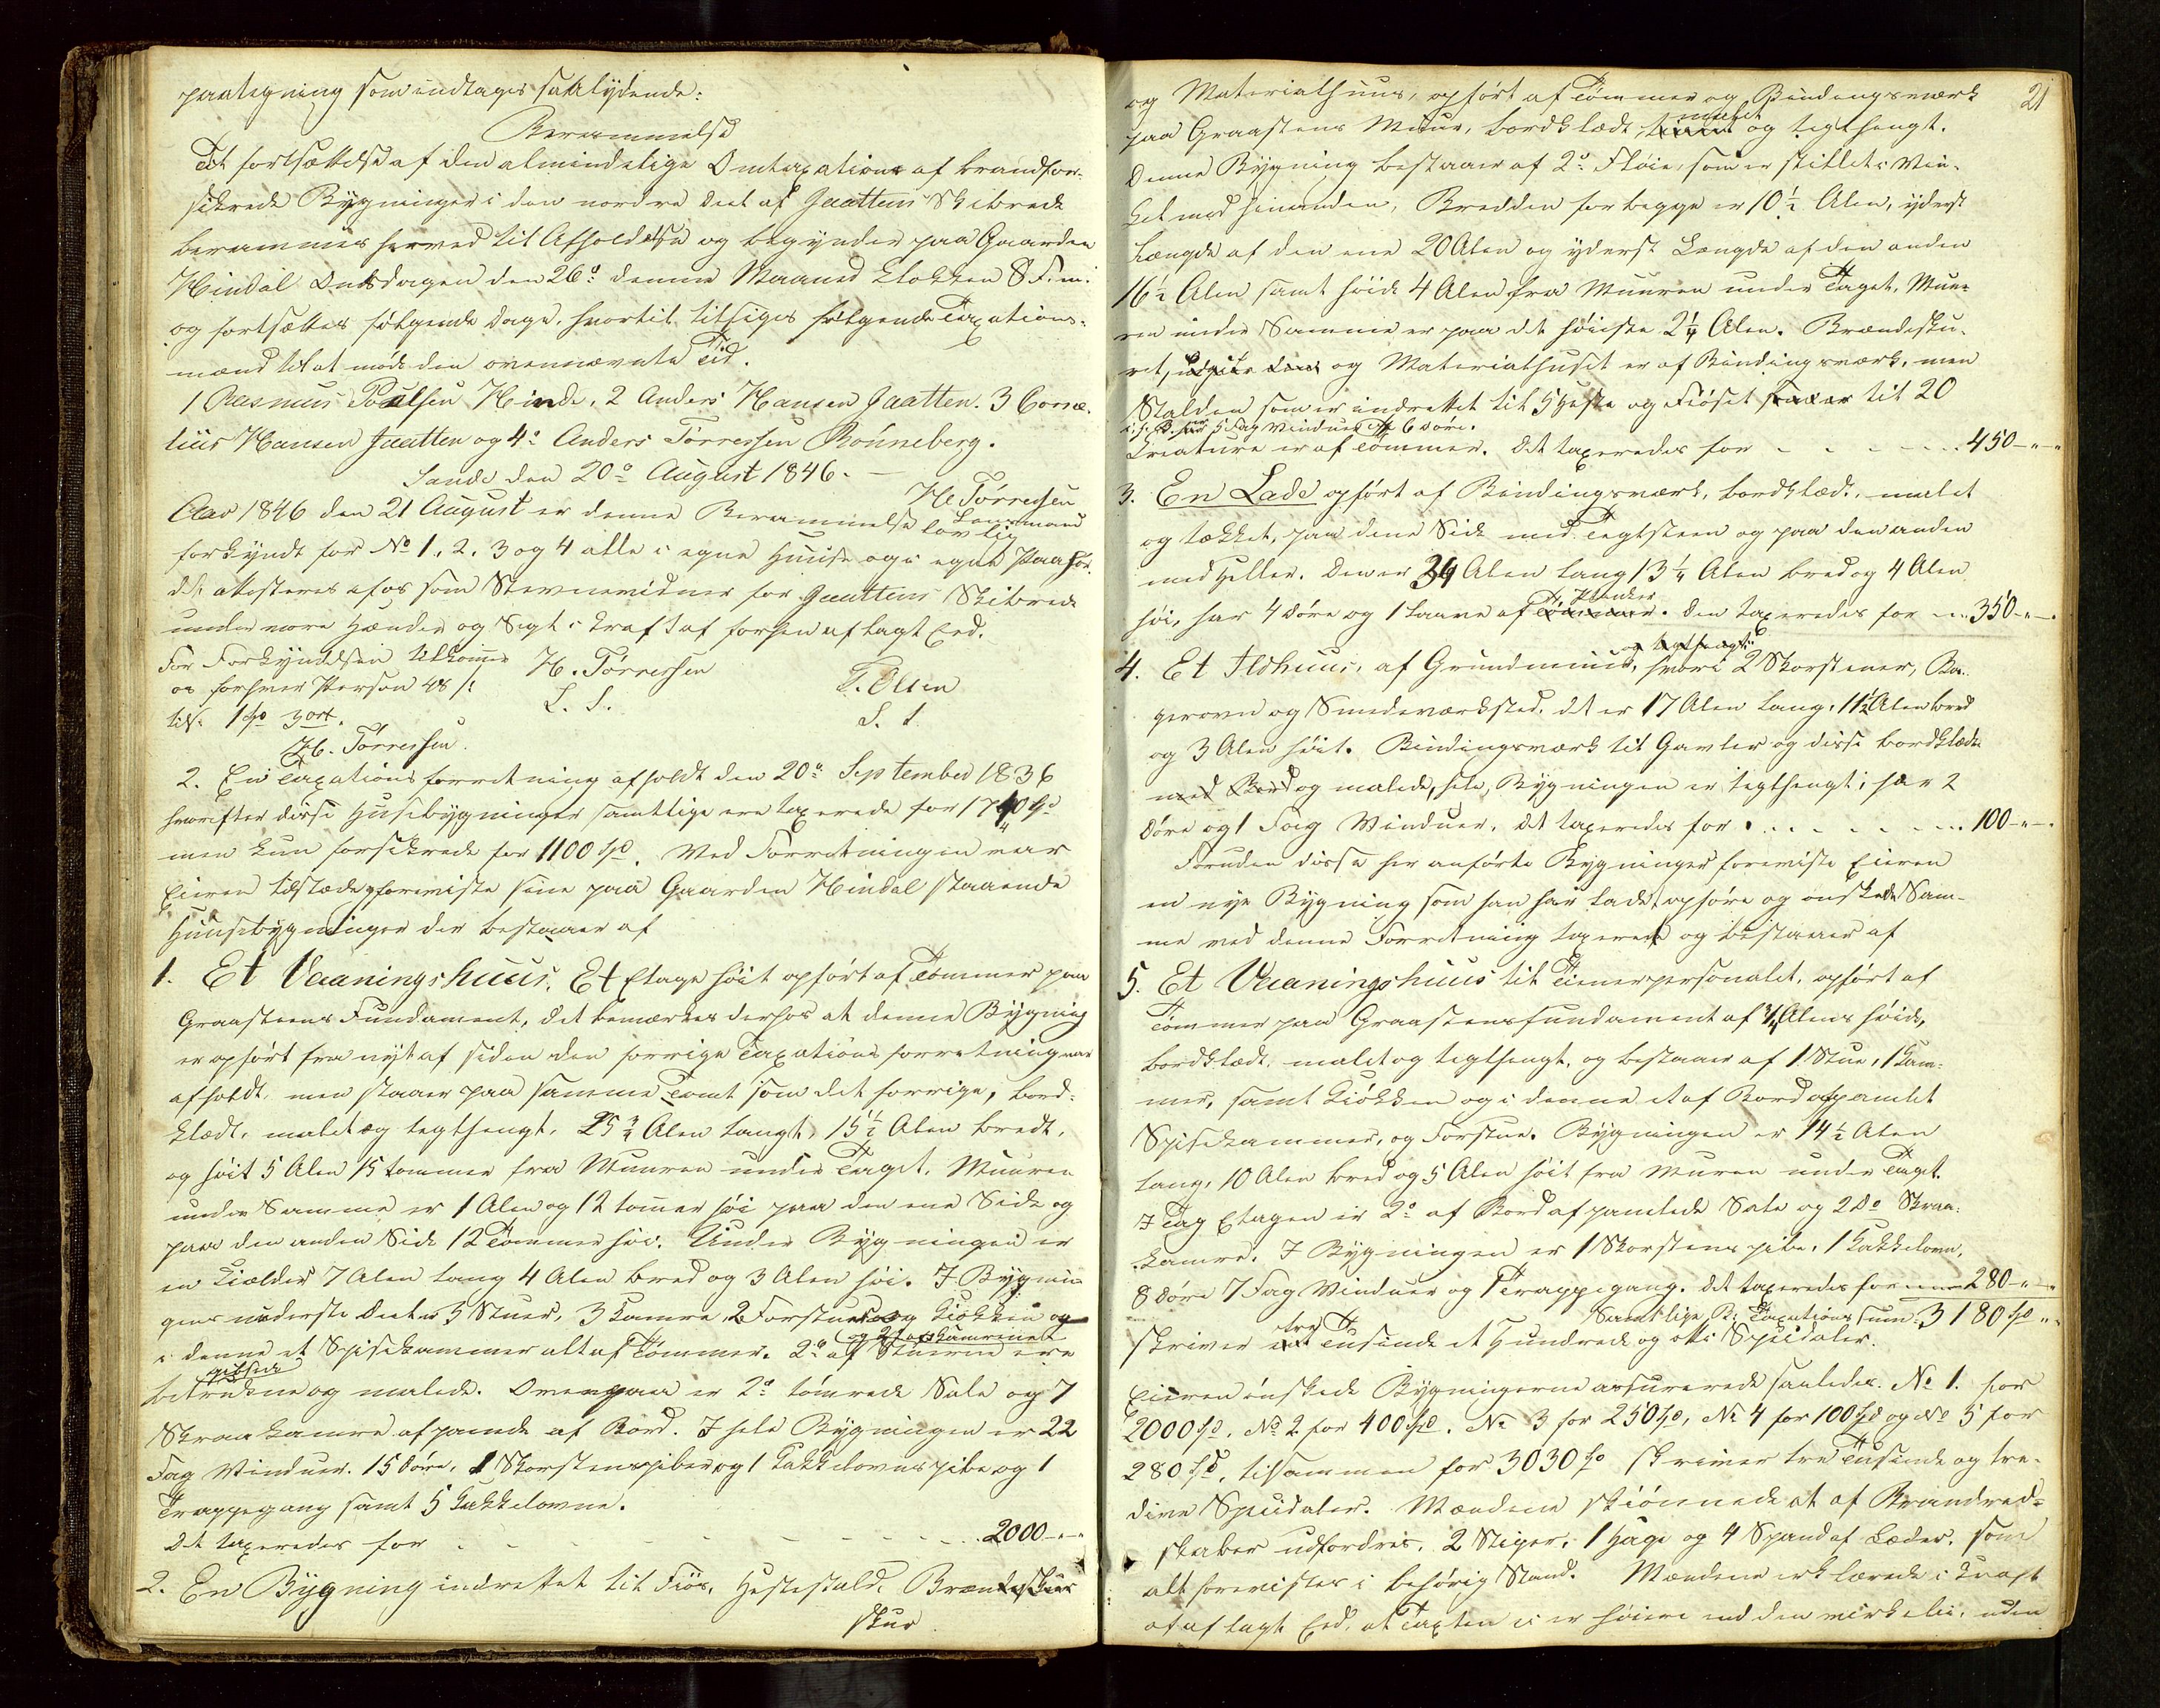 paategning som indtages saalydende:
Berammelse
Til fortsættelse af den almindelige Omtaxation af brandfor-
sikrede Bygninger i den nordre Deel af Jaattens Skibrede
berammes herved til Afholdelse og begynder paa Gaarden
Hindal Onsdagen den 26d: denne Maaned Klokken 8 F.m.
og fortsættes følgende Dage, hvortil tilsiges følgende Taxations-
mænd til at møde den ovennævnte Tid.
1 Rasmus Poulsen Hinde, 2 Anders Hansen Jaatten. 3 Corne-
lius Hansen Jaatten og 4: Anders Tørressen Rönneberg.
Sande den 20d August 1846.
H Tørressen
Lensmand
Aar 1846 den 21 August er denne Berammelse lovlig
forkyndt for No 1, 2, 3 og 4 alle i egne Huuse og i egne Paahør.
det attesteres af os som Stevnevidner for Jaattens Skibrede
under vore Hænder og Segl i Kraft af forhen aflagt Eed.
For Forkyndelsen tilkommer H. Tørressen
os for hver Person 48 s: T. Olsen
tils: 1 Spd 3 ort. L. S. L. S.
H. Tørressen.
2. En Taxationsforretning afholdt den 20d September 1836
hvorefter disse Husebygninger samtlige ere taxerede for 1740 Spd
men kun forsikrede for 1100 Spd. Ved Forretningen var
Eieren tilstæde, foreviste sine paa Gaarden Hindal staaende
Huusebygninger der bestaaer af
1. Et Vaaningshuus, Et Etage høit opført af Tømmer paa
Graasteens Fundament, det bemærkes derhos at denne Bygning
er opført fra nyt af siden den forrige Taxationsforretning var
afholdt, men staaer paa samme Tomt som det forrige, bord-
klædt, malet og teglhengt, 25 3/4 Alen langt, 15 1/2 Alen bredt,
og høit 5 Alen 15 tommer fra Muuren under Taget, Muuren
under Samme er 1 Alen og 12 tommer høi paa den ene Side og
paa den anden Side 12 Tommer høi. Under Bygningen er
en Kiælder 7 Alen lang 4 Alen bred og 3 Alen høi. I Bygnin-
gens underste Deel er 3 Stuer, 3 Kamre, 2 Forstuer og Kiøkken og
i denne et Spisekammer alt af Tømmer. 2d af Stuerne og 2 af Kamrene ere
gibsede
betrukne og malede. Ovenpaa er 2d tømrede Sale og 7
Skraakamre afpanede af Bord. I hele Bygningen er 22
Fag Vinduer. 15 Døre, 1 Skorstenspiber og 1 Kakkelovnspibe og 1
Trappegang samt 5 Kakkelovne.
Det taxeredes for - - - - - - 2000-"-"
2. En Bygning indrettet til Fiøs, Hestestald, Brændeskuur
skuur
21
og Materialhuus, opført af Tømmer og Bindingsværk
paa Graastens Muur, bordklædt, malet og teglhengt.
Denne Bygning bestaaer af 2d Fløie, som er stillet i Vin-
kel med hinanden, Bredden for begge er 10 1/2 Alen, yderst
Længde af den ene 20 Alen og yderst Længde af den anden
16 1/2 Alen samt høide 4 Alen fra Muuren under Taget, Muu-
ren under Samme er paa det høieste 2 1/4 Alen. Brændesku-
ret, og Materialhuset er af Bindingsværk, men
Stalden som er indrettet til 5 Heste og Fiøset til 20
5 Fag Vinduer og 6 Døre.
Kreature er af Tømmer. Det taxeredes for - - - - - 450-"-"
3. En Lade opført af Bindingsværk, bordklædt, malet
og tækket, paa dene Side med Teglsteen og paa den anden
med Heller. Den er 34 Alen lang 13 1/4 Alen bred og 4 Alen
høi, har 4 Døre og 1 Laave af Planker. Den taxeredes for --- 350-"-"
4. Et Ildhuus, af Grundmuur, og teglhengt hvori 2 Skorstener, Ba-
gerovn og Smedeværksted. Det er 17 Alen lang, 11 1/2 Alen bred
og 3 Alen høit. Bindingsværk til Gavler og disse bordklædt
med Bord og malede, hele Bygningen er teglhengt; har 2
Døre og 1 Fag Vinduer. Det taxeredes for - - - - - 100-"-"
Foruden disse her anførte Bygninger foreviste Eieren
en nye Bygning som han har ladet opføre og ønskede Sam-
me ved denne Forretning taxeret og bestaaer af
5. Et Vaaningshuus til Tienerpersonalet, opført af
Tømmer paa Graastensfundament af 3/4 Alens høide,
bordklædt, malet og teglhengt, og bestaaer af 1 Stue, 1 Kam-
mer, samt Kiøkken og i denne et af Bord afpanelet
Spisekammer, og Forstue. Bygningen er 14 1/2 Alen
lang, 10 Alen bred og 5 Alen høit fra Muren under Taget.
I Tag Etagen er 2d af Bord afpanelede Sale og 2 Do Skraa-
kamre. I Bygningen er 1 Skorstenspibe, 1 Kakkelovn,
8 Døre 7 Fag Vinduer og 1 Trappegang. Det taxeredes for --- 280-"-"
Samtlige Bs: Taxationssum: 3180 Spd "-"
skriver tre Tusinde et Hundrede og otti Speciedaler.
Eieren ønskede Bygningerne assurerede saaledes. No 1. for
2000 Spd, No 2 for 400 Spd, No 3 for 250 Spd, No 4 for 100 Spd og No 5 for
280 Spd, tilsammen for 3030 Spd skriver tre Tusinde og tre-
dive Speciedaler. Mændene skiønnede at af Brandred-
skaber udfordres, 2 Stiger, 1 Hage og 4 Spand af Læder, som
alt forevistes i behørig Stand. Mændene erklærede i Kraft
af aflagt Eed, at Taxten ei er høiere end den virkelig, uden